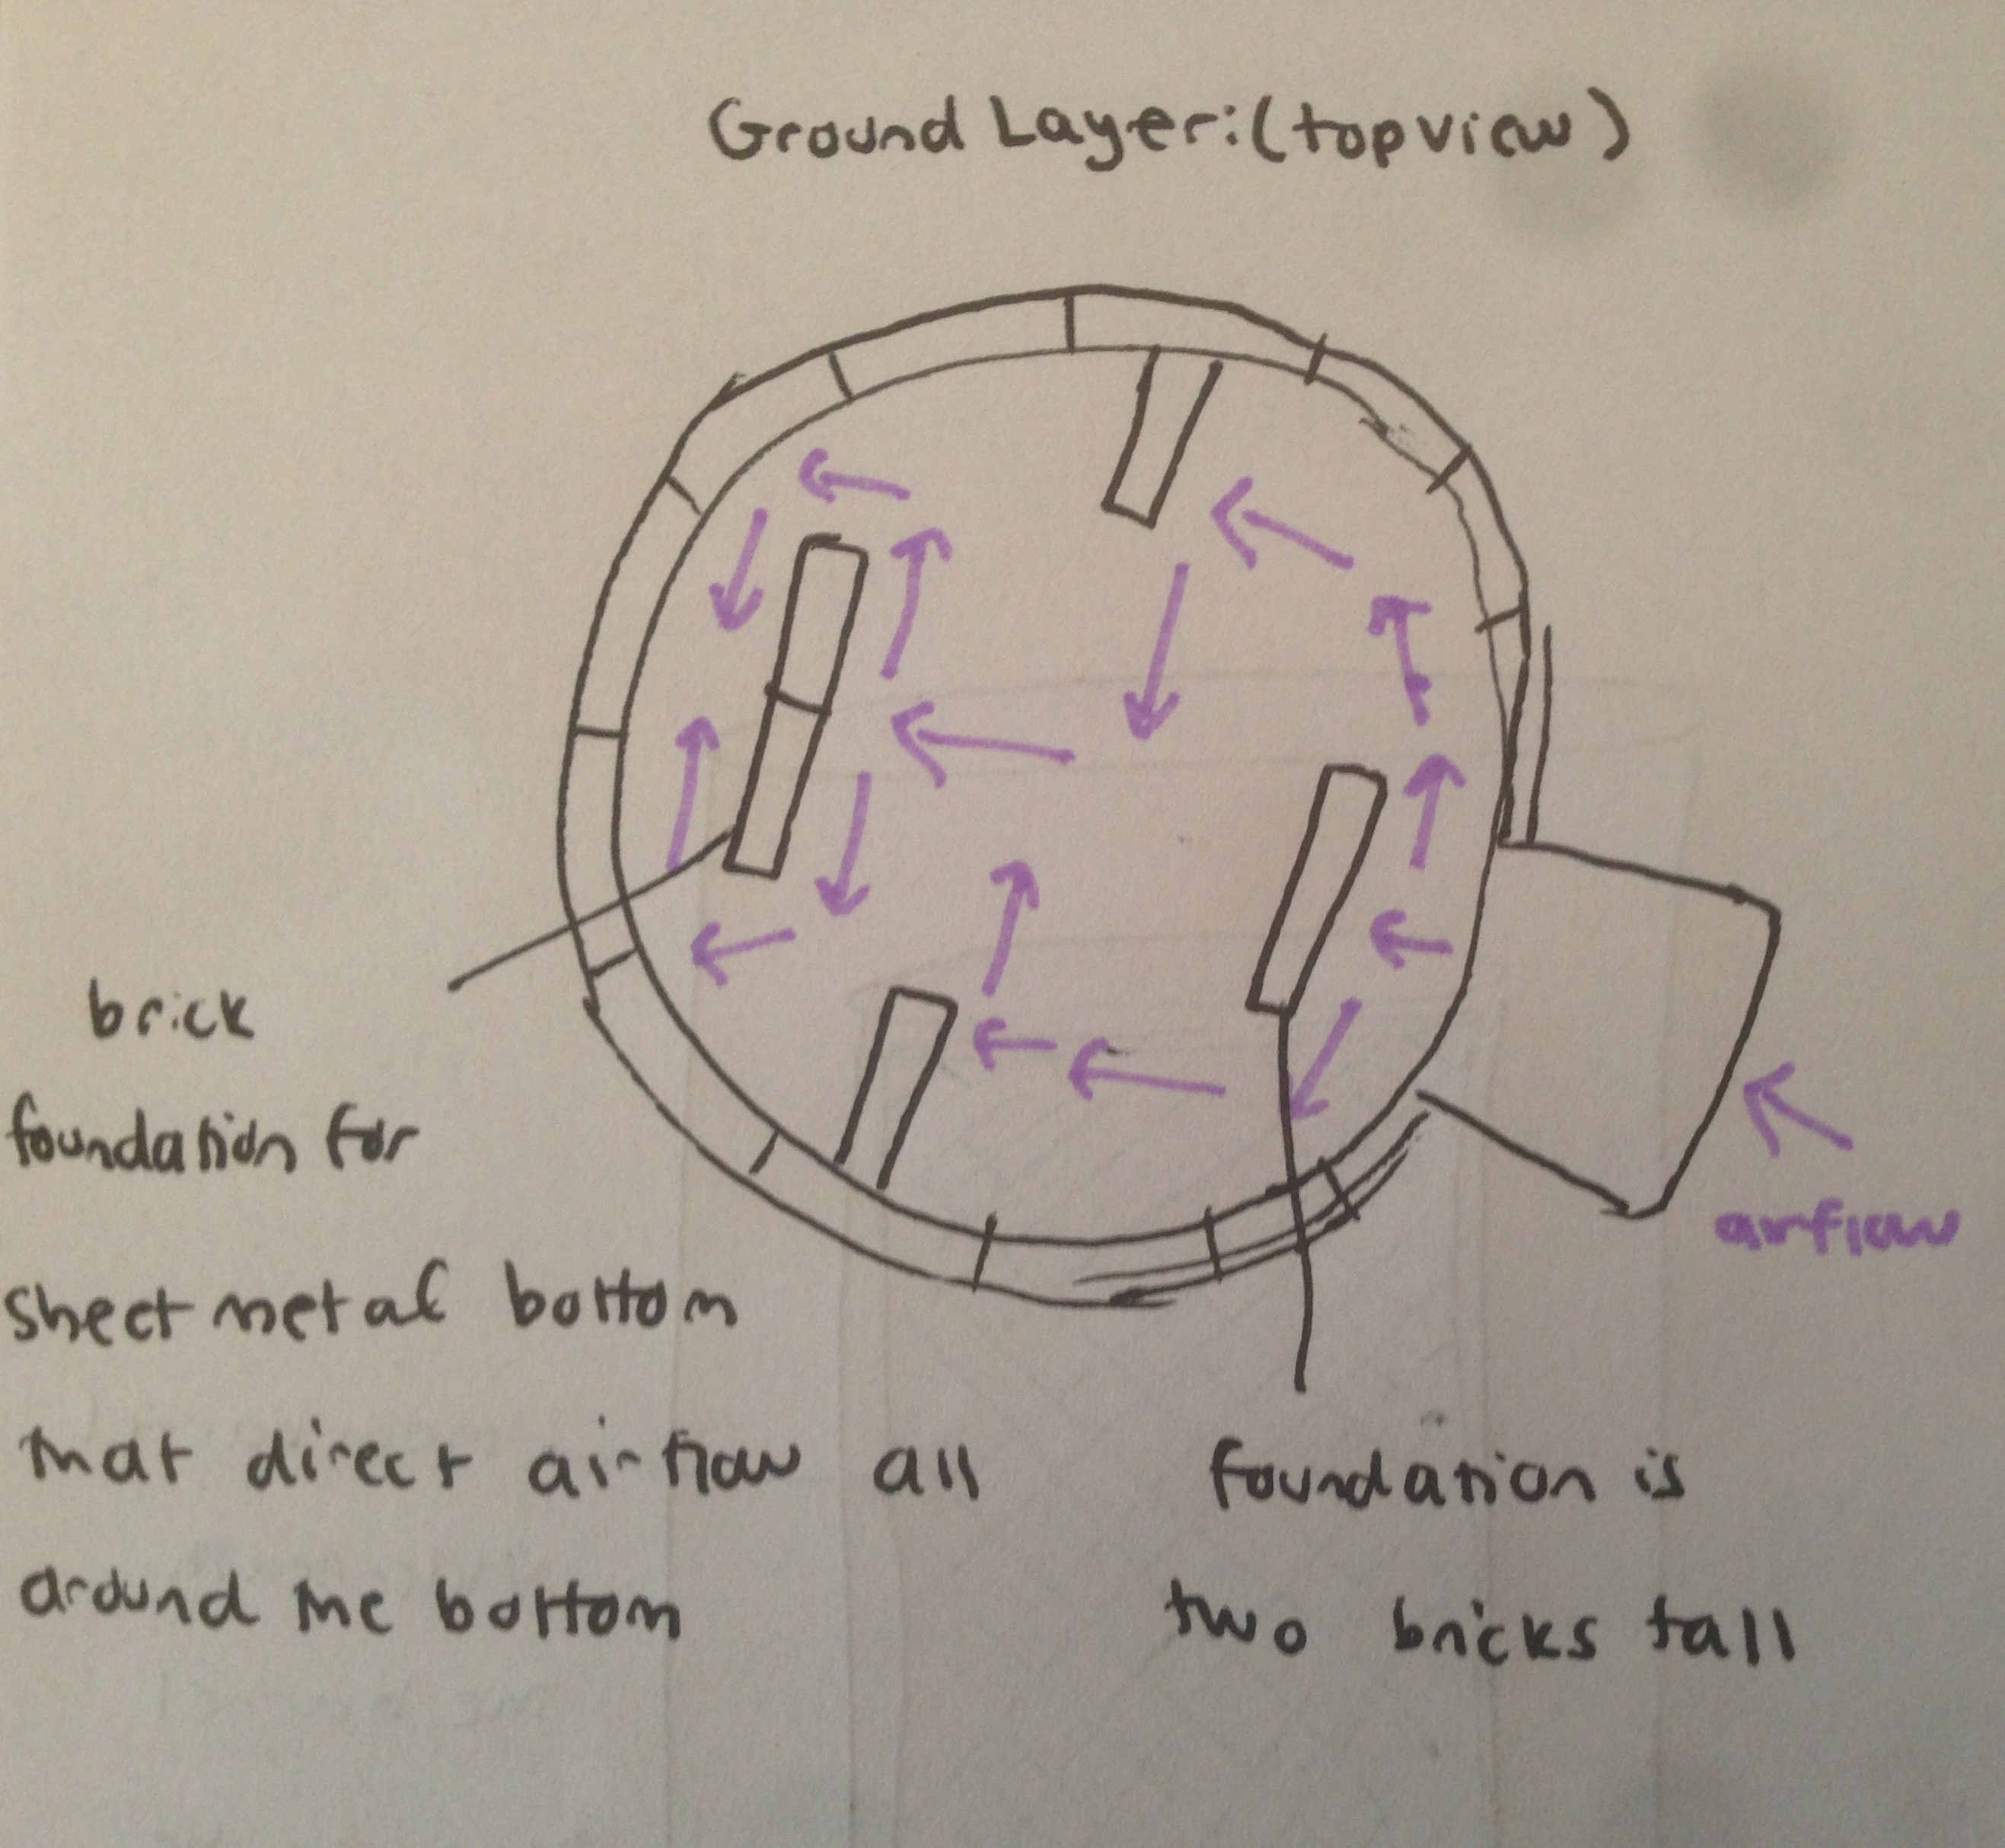 Ground Layer:(top view)
airflow
brick
foundation for
sheet metal bottom
that direct airflow all
around the bottom
foundation is
two bricks tall